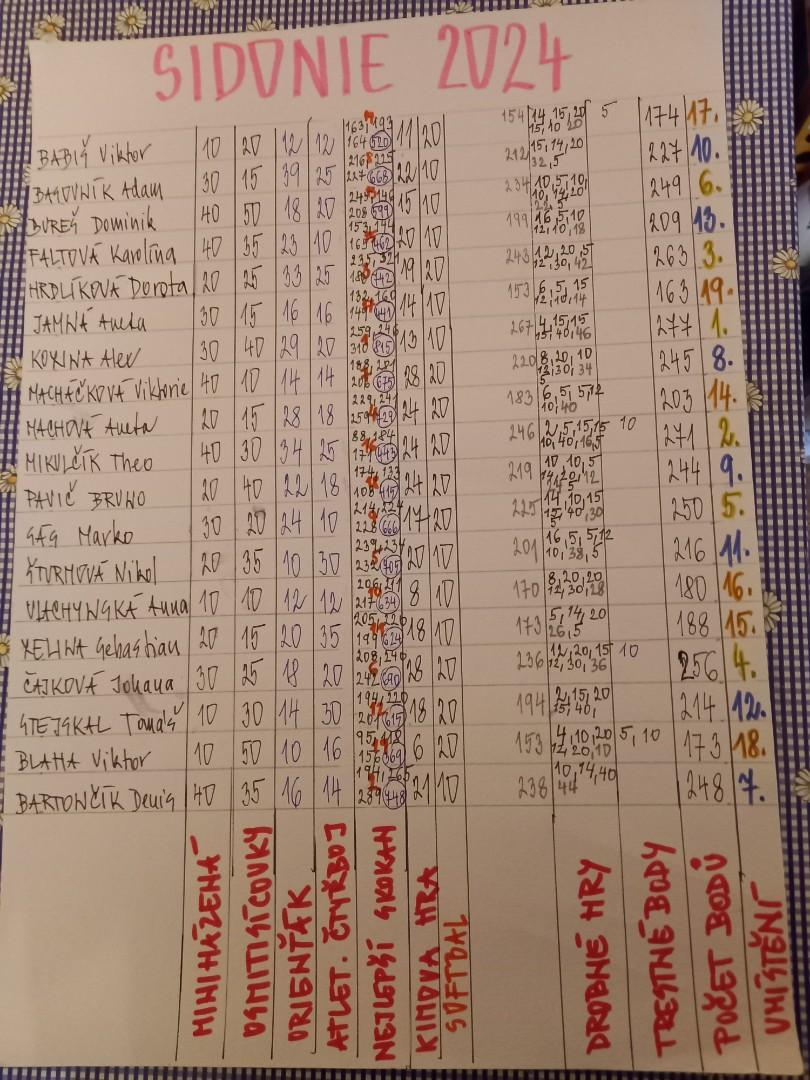 SIDONIE 2024
BABIŠ Viktor 10 20 12 12 163, 193 164 520 11 20 154 14, 15, 20 15, 10 20 5 174 17.
BAŤOVNÍK Adam 30 15 39 25 216, 225 227 668 22 10 212 15, 14, 20 32, 5 227 10.
BUREŠ Dominik 40 50 18 20 245, 146 208 599 15 10 234 10, 5, 10, 10, 14, 20, 249 6.
FALTOVÁ Karolína 40 35 23 10 153, 144 165 462 20 10 199 16, 5, 10 12, 10, 18 209 13.
HRDLÍKOVÁ Dorota 20 25 33 25 235, 321 742 19 20 243 12, 20, 5 12, 30, 42 263 3.
JAMNÁ Aneta 30 15 16 16 132, 160 149 441 14 10 153 6, 5, 15 12, 10, 14 163 19.
KOXINA Alex 30 40 29 20 259, 246 310 815 13 10 267 4, 15, 15 15, 40, 46 277 1.
MACHÁČKOVÁ Viktorie 40 10 14 14 675 28 20 220 8, 20, 10 12, 30, 34 5 245 8.
MACHOVÁ Aneta 20 15 28 18 229, 241 259 729 24 20 183 6, 5, 5, 12 10, 40 203 14.
MIKULČÍK Theo 40 30 34 25 88, 184 171 443 24 20 246 2, 5, 15, 15 10, 40, 16, 5 10 271 2.
PAVIČ BRUNO 20 40 22 18 174, 133 108 415 24 20 219 10, 10, 5 14, 20, 12 5 244 9.
SÁG Marko 30 20 24 10 214, 224 228 666 17 20 225 14, 10, 15 15, 40, 30 5 250 5.
ŠTURMOVÁ Nikol 20 35 10 30 239, 234 232 705 20 10 201 16, 5, 5, 12 10, 38, 5 216 11.
VLACHYNSKÁ Anna 10 10 12 12 206, 211 217 634 8 10 170 8, 20, 20 12, 30, 28 180 16.
XELINA Sebastian 20 15 20 35 205, 220 199 624 18 10 173 5, 14, 20 26, 5 188 15.
ČAJKOVÁ Johana 30 25 18 20 208, 240 242 690 28 20 236 12, 20, 15 12, 30, 36 10 256 4.
STEJSKAL Tomáš 10 30 14 30 194, 220 201 615 18 20 194 2, 15, 20 15, 40, 214 12.
BLAHA Viktor 10 50 10 16 95, 118 156 369 6 20 153 4, 10, 20 12, 20, 10 5, 10 173 18.
BARTONČÍK Denis 40 35 16 14 748 21 10 238 10, 14, 40 44 248 7.
MINIHÁZENÁ
OSMITISÍCOVKY
ORIENŤÁK
ATLET. ČTYŘBOJ
NEJLEPŠÍ SKOKAN
KIMOVA HRA
SOFTBAL
DROBNÉ HRY
TRESTNÉ BODY
POČET BODŮ
UMÍSTĚNÍ